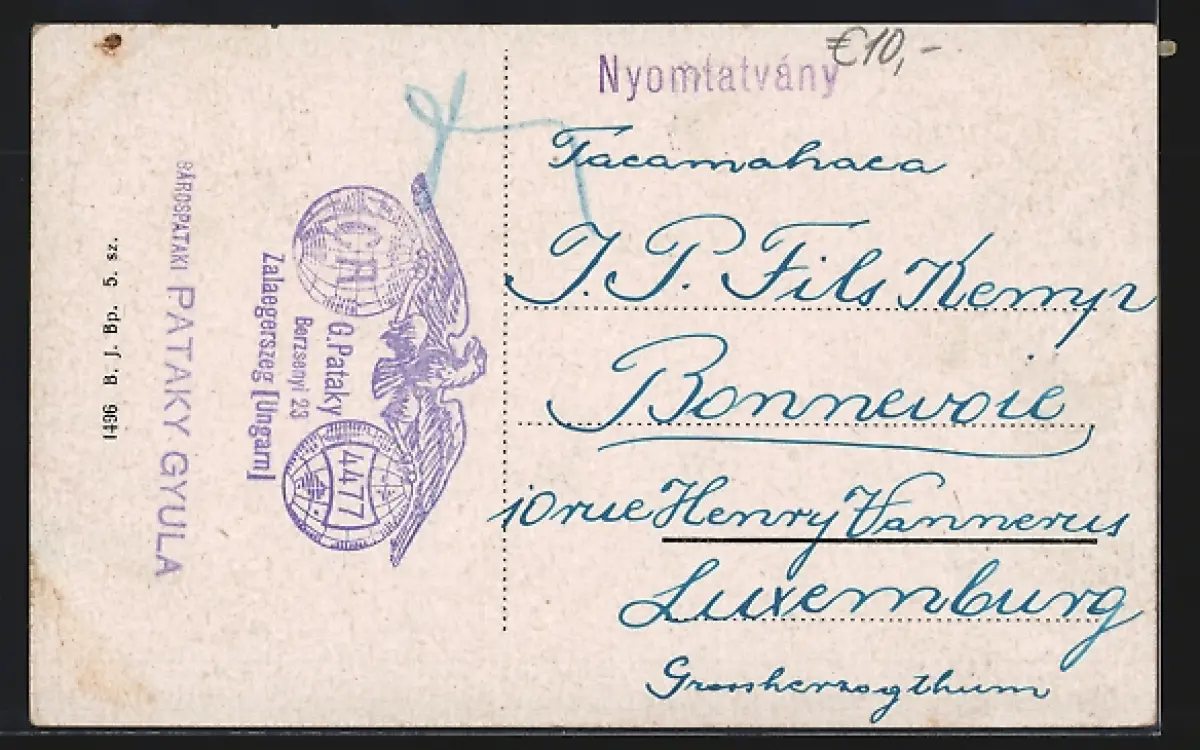 €10,-
Nyomtatvány
Tacamahaca
J. P. Fils Kemp
Bonnevoie
10 rue Henry Vannerus
Luxemburg
Grossherzogthum
C.A.
G. Pataky
Berzsenyi 23
Zalaegerszeg [Ungarn]
4477
SÁROSPATAKI PATAKY GYULA
1436 B. J. Bp. 5. sz.